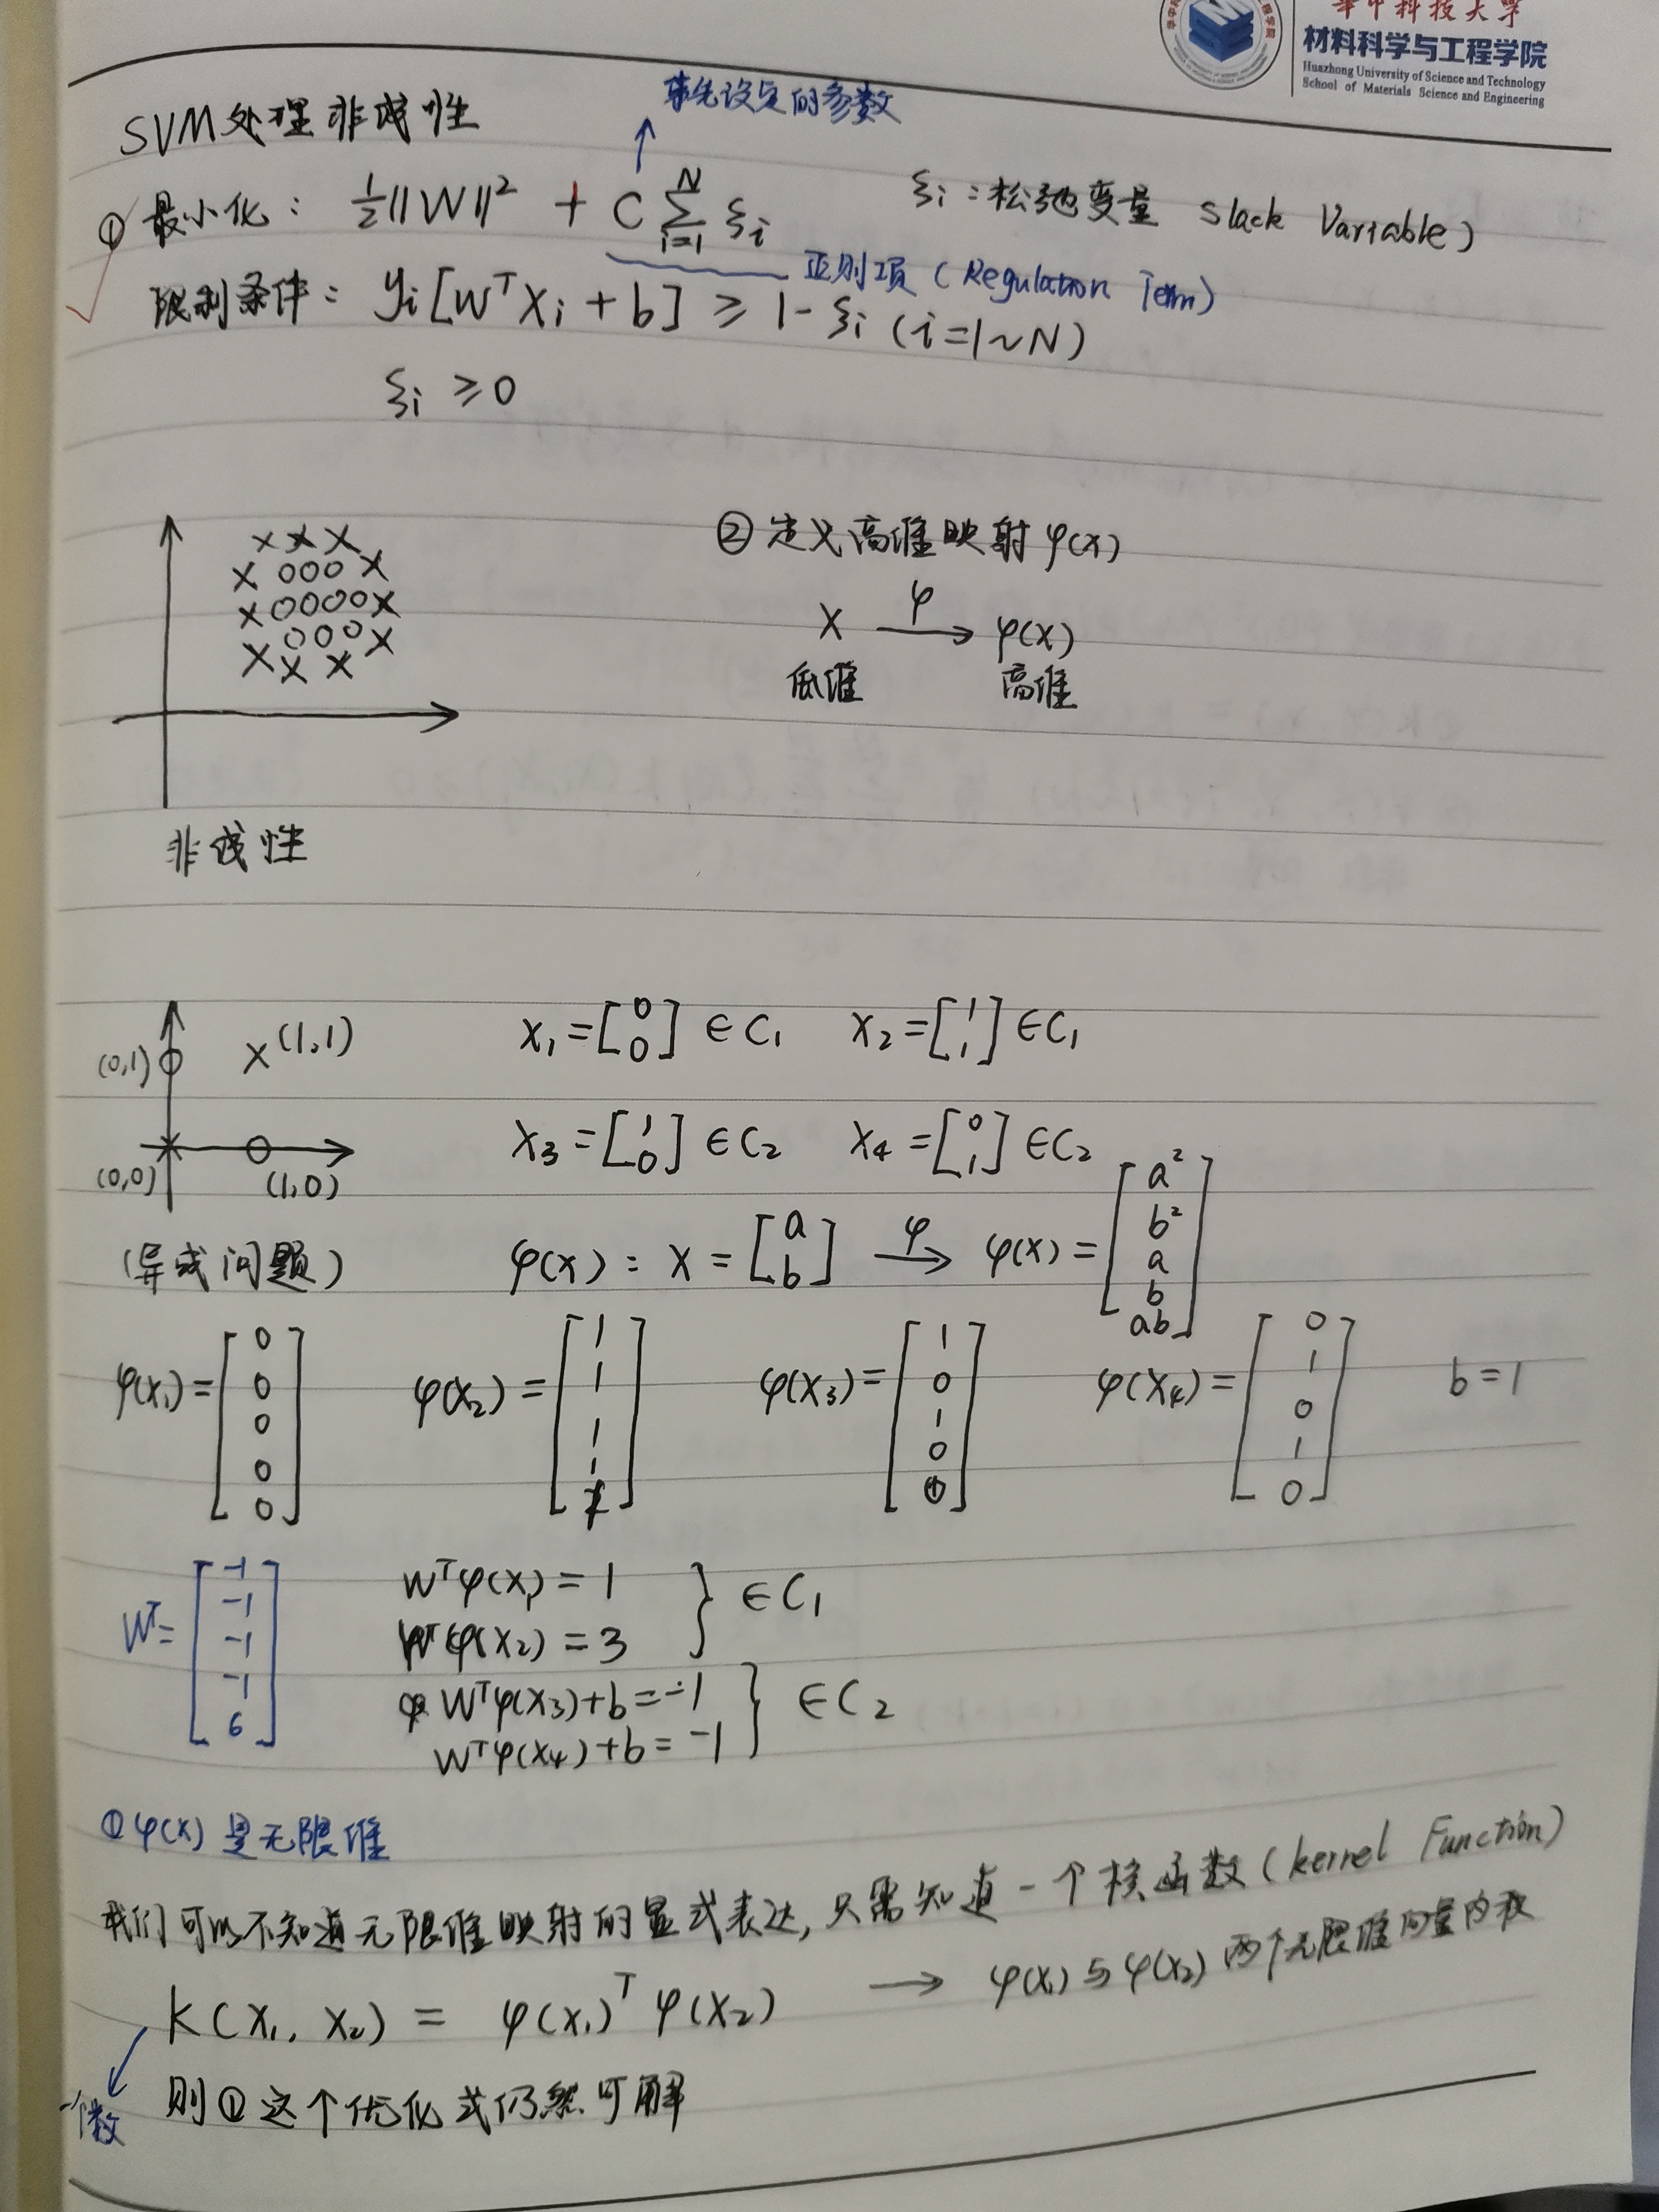 華中科技大学
材料科学与工程学院
Huazhong University of Science and Technology
School of Materials Science and Engineering
事先设定的参数
SVM处理非线性
① 最小化: ½||W||² + C Σ_{i=1}^{N} ξi ξi:松弛变量 Slack Variable)
正则项 (Regulation Term)
限制条件: yi[WᵀXi+b] ≥ 1-ξi (i=1~N)
ξi ≥0
② 定义高维映射 φ(x)
X —φ→ φ(X)
低维 高维
非线性
(0,1) X(1,1) X₁=[0 0] ∈C₁ X₂=[1 1] ∈C₁
(0,0) (1,0) X₃=[1 0] ∈C₂ X₄=[0 1] ∈C₂
(异或问题) φ(x): X=[a b] —φ→ φ(x)=[a² b² a b ab]
φ(X₁)=[0 0 0 0 0] φ(X₂)=[1 1 1 1 1] φ(X₃)=[1 0 1 0 0] φ(X₄)=[0 1 0 1 0] b=1
Wᵀ=[-1 -1 -1 -1 6]
Wᵀφ(X₁)=1
Wᵀφ(X₂)=3 } ∈C₁
Wᵀφ(X₃)+b=-1
Wᵀφ(X₄)+b=-1 } ∈C₂
①φ(x) 是无限维
我们可以不知道无限维映射的显式表达,只需知道一个核函数(kernel Function)
K(X₁, X₂) = φ(X₁)ᵀφ(X₂) → φ(X₁)与φ(X₂)两个无限维向量内积
一个数
则①这个优化式仍然可解